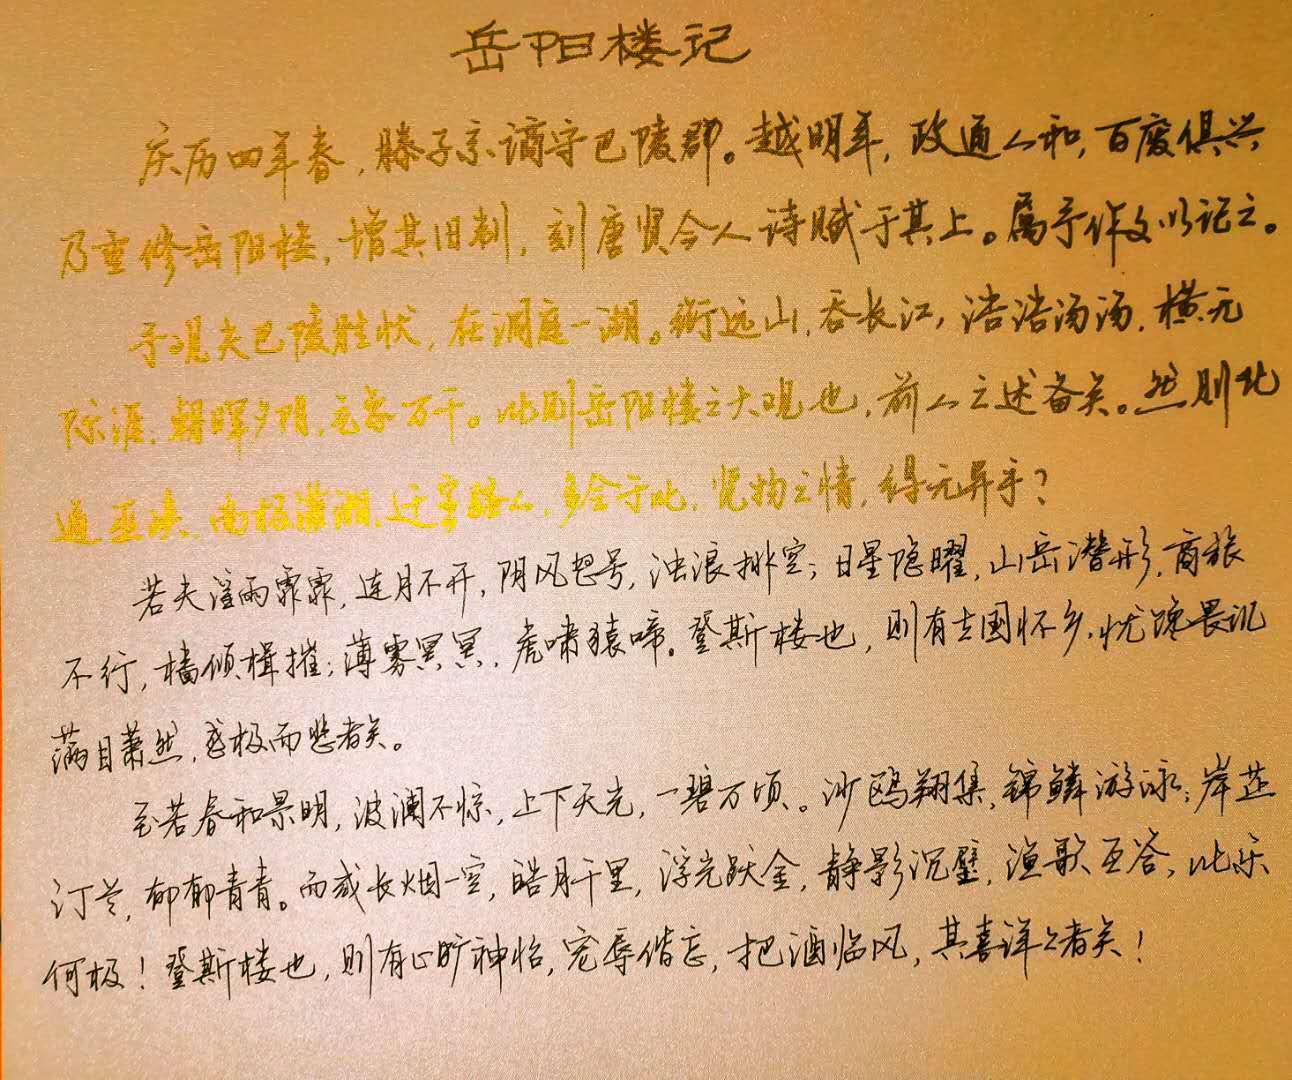 岳阳楼记
庆历四年春,滕子京谪守巴陵郡。越明年,政通人和,百废俱兴,
乃重修岳阳楼,增其旧制,刻唐贤今人诗赋于其上。属予作文以记之。
予观夫巴陵胜状,在洞庭一湖。衔远山,吞长江,浩浩汤汤,横无
际涯,朝晖夕阴,气象万千。此则岳阳楼之大观也,前人之述备矣。然则北
通巫峡,南极潇湘,迁客骚人,多会于此,览物之情,得无异乎?
若夫淫雨霏霏,连月不开,阴风怒号,浊浪排空;日星隐曜,山岳潜形,商旅
不行,樯倾楫摧;薄雾冥冥,虎啸猿啼。登斯楼也,则有去国怀乡,忧谗畏讥
满目萧然,感极而悲者矣。
至若春和景明,波澜不惊,上下天光,一碧万顷。沙鸥翔集,锦鳞游泳;岸芷
汀兰,郁郁青青。而或长烟一空,皓月千里,浮光跃金,静影沉璧,渔歌互答,此乐
何极!登斯楼也,则有心旷神怡,宠辱偕忘,把酒临风,其喜洋々者矣!